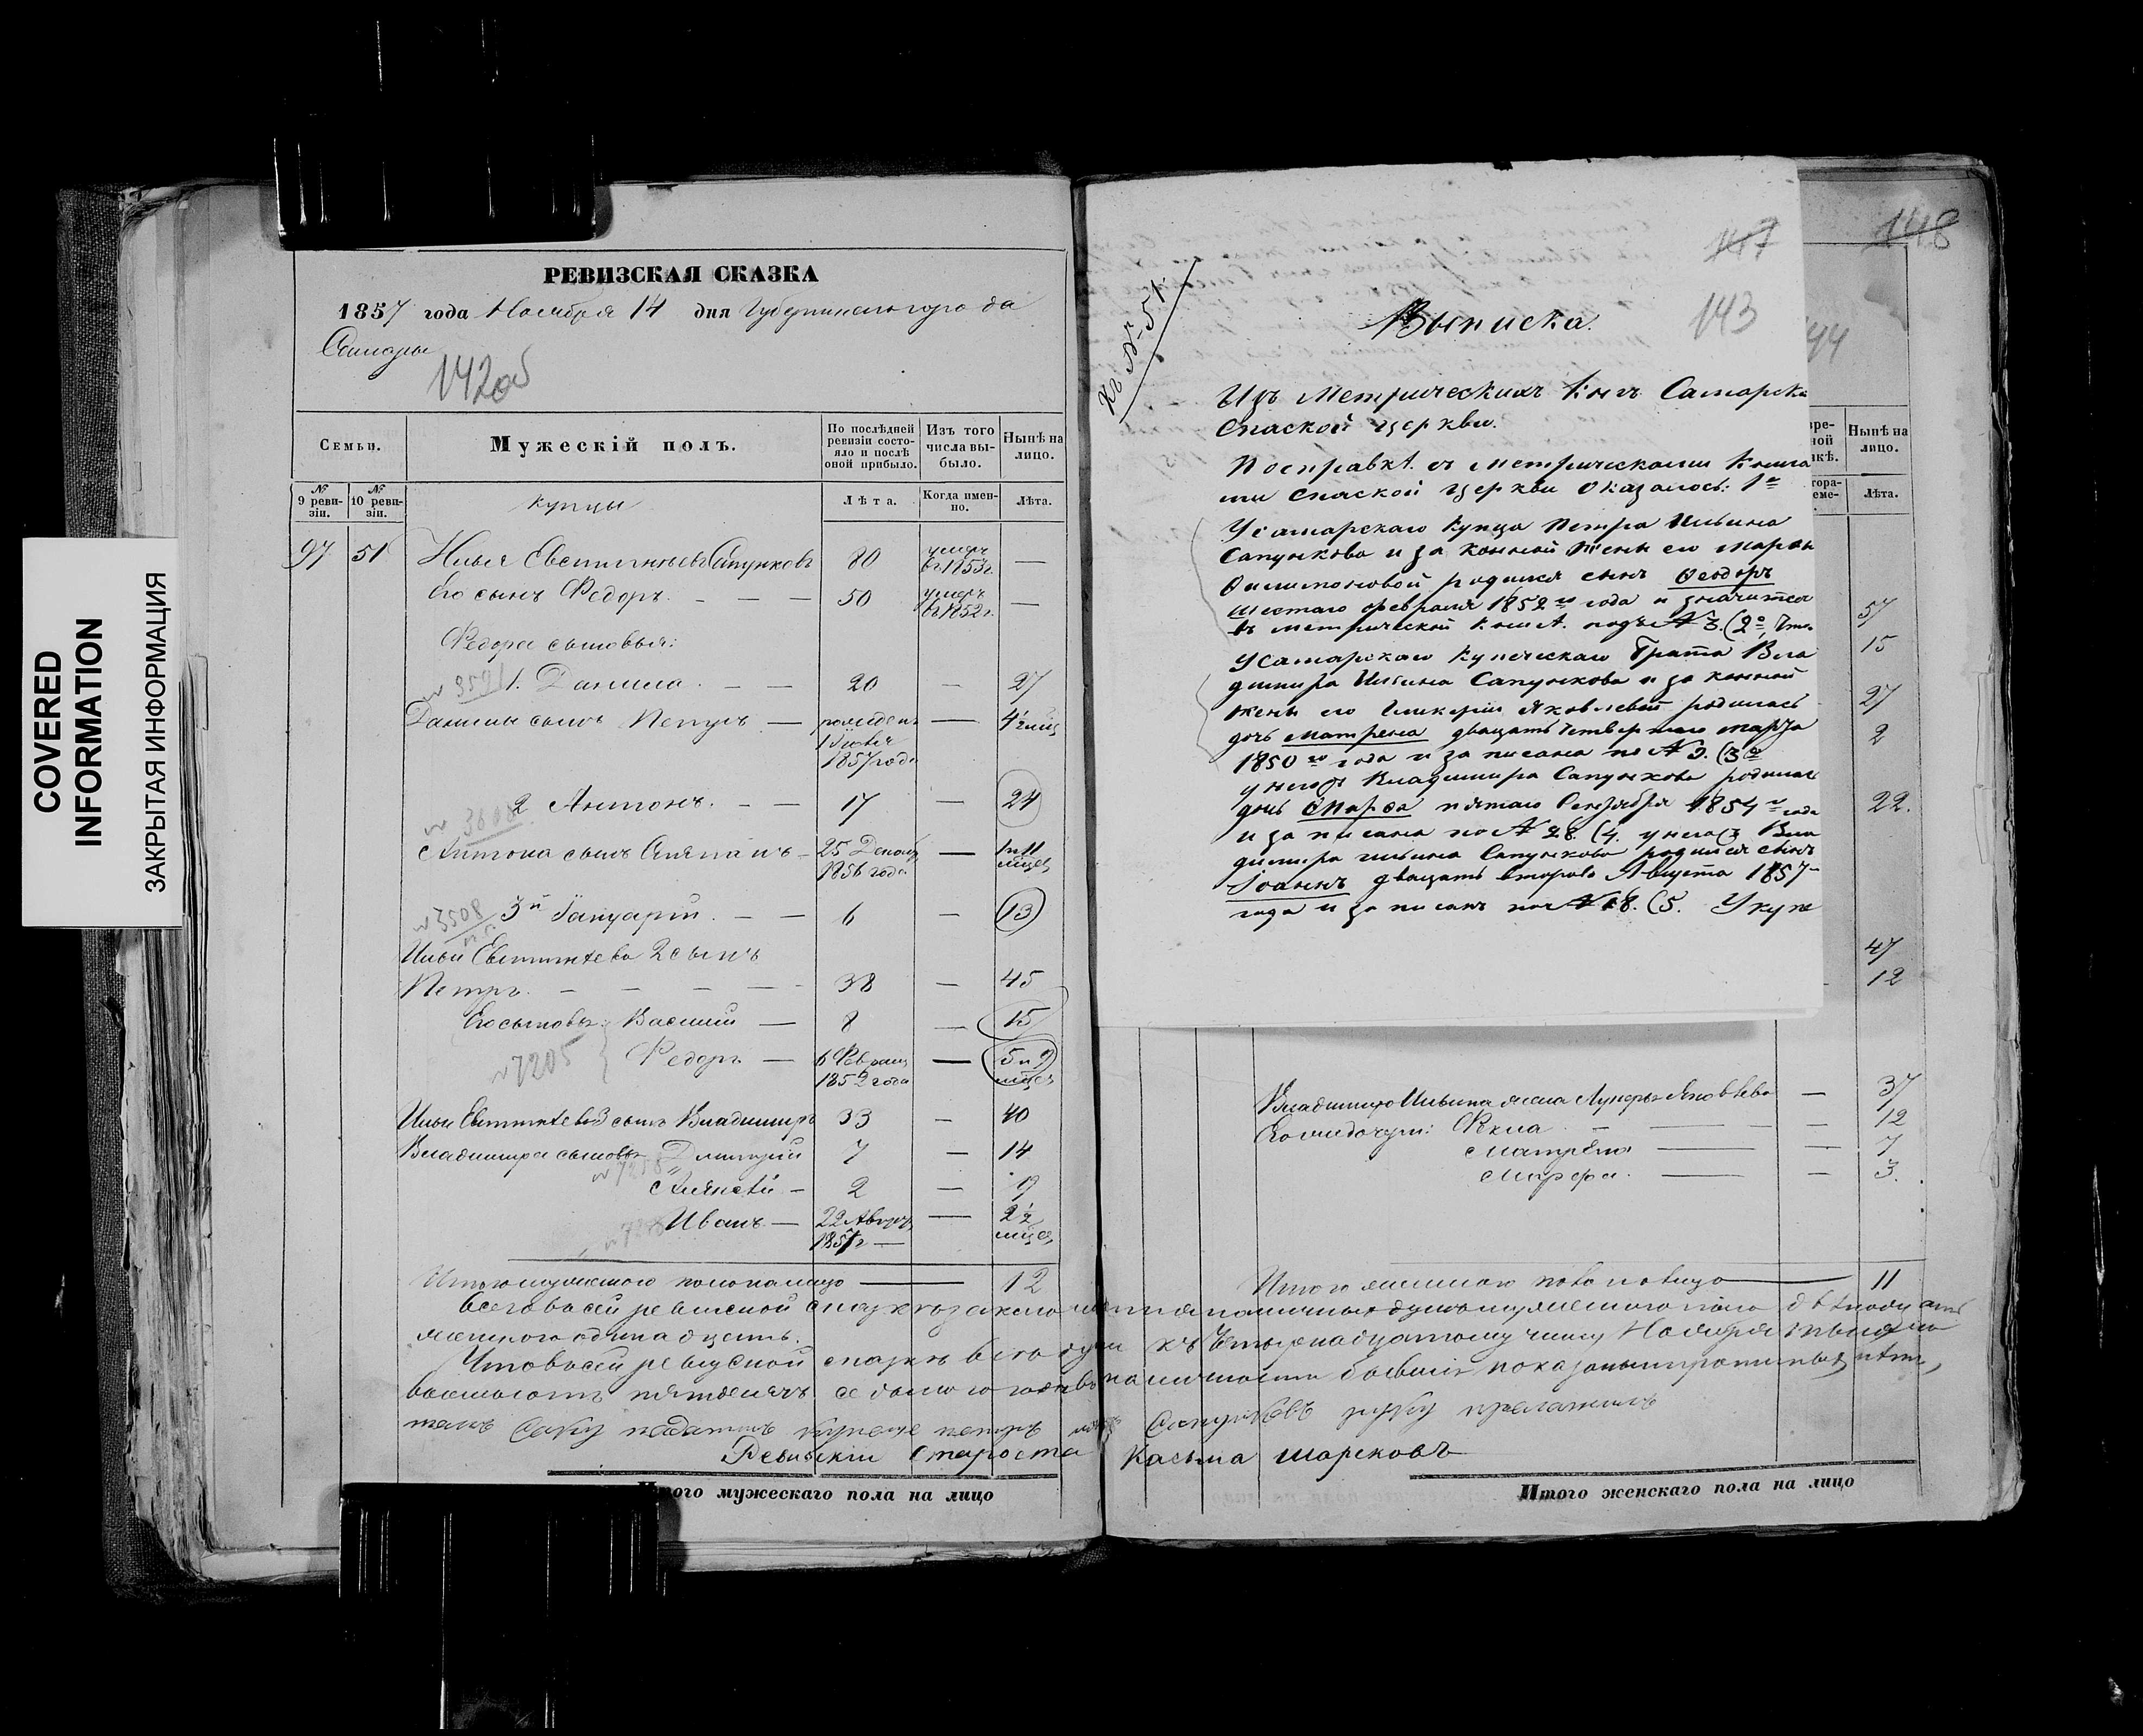 COVERED
INFORMATION
ЗАКРЫТАЯ ИНФОРМАЦИЯ
РЕВИЗСКАЯ СКАЗКА
1857 года Ноября 14 дня Губернскаго города
Самары
142об
Семьи.
Мужескій полъ.
По послѣдней ревизіи состояло и послѣ оной прибыло.
Изъ того числа выбыло.
Нынѣ на лицо.
№ 9 ревизіи.
№ 10 ревизіи.
купцы
Лѣта.
Когда именно.
Лѣта.
97 51 Илья Евстигнѣевъ Сапунковъ 80 умеръ въ 1853 г. —
Его сынъ Федоръ. — — — 50 умеръ въ 1852 г. —
Федора сыновья:
1. Данила. — — 20 — 27
Данилы сынъ — рожденъ 1 Iюля 1857 года — 4½ мѣц
2 Антонъ. — — 17 — 24
Антона сынъ — 25 Декаб 1856 года — мѣсец
№ 3508 3й Iануарій. — — 6 — 13
Ильи Евстигнѣева 2 сынъ
Петръ. — — — — — 38 — 45
Его сыновья: Василий — 8 — 15
№ 7205 Федоръ — 6 Феврал 1852 года — 5 и 9 мѣсец
Ильи Евстигнѣева 3 сынъ Владимиръ 33 — 40
Владимира сыновья Дмитрий 7 — 14
Алексѣй — 2 — 9
Иванъ — 22 Август 1857 г — 2½ мѣсец
Итого мужескаго пола на лицо — 12
148
144
Нынѣ на лицо.
Лѣта.
57
15
27
2
22.
47
12
147
143
Къ № 51.
Выписка.
Изъ Метрическихъ книгъ Самарско
Спаской церкви.
По справкѣ съ метрическими книга
ми Спаской церкви оказалось: 1е
У Самарскаго купца Петра Ильина
Сапункова и законной жены его Марфы
Филимоновой родился сынъ Феодоръ
шестаго февраля 1852го года и значится
въ метрической книгѣ подъ № 3. (2е,
У Самарскаго купеческаго брата Вла
димира Ильина Сапункова и законной
жены его Гликерiи Яковлевой родилась
дочь Матрена двацать четвертаго марта
1850го года и записана по № 9. (3е
у него Владимира Сапункова родилась
дочь Марфа пятаго Сентября 1854го года
и записана по № 28. (4. у него Вла
димира Ильина Сапункова родился сынъ
Iоаннъ двацать втораго Августа 1857
года и записанъ по № 18. (5. У купе
Владимира Ильина жена Лукерья Яковлева — 37
Его дочери: Фекла — — — 12
Матрена — — 7
Марфа. — — 3.
Итого женскаго пола на лицо — 11
Всего въ сей ревизской сказкѣ показано наличныхъ душъ мужескаго пола двѣнадцать
женскаго одинадцать.
Что въ сей ревизской сказкѣ всѣ души къ четырнадцатому числу Ноября тысяча
восьмьсотъ пятьдесятъ седьмаго года въ наличности бывшія показаны и противъ лѣтъ,
купецъ петръ Сапунковъ руку приложилъ
Ревизскiй Староста Касьма Шарековъ
Итого мужескаго пола на лицо
Итого женскаго пола на лицо